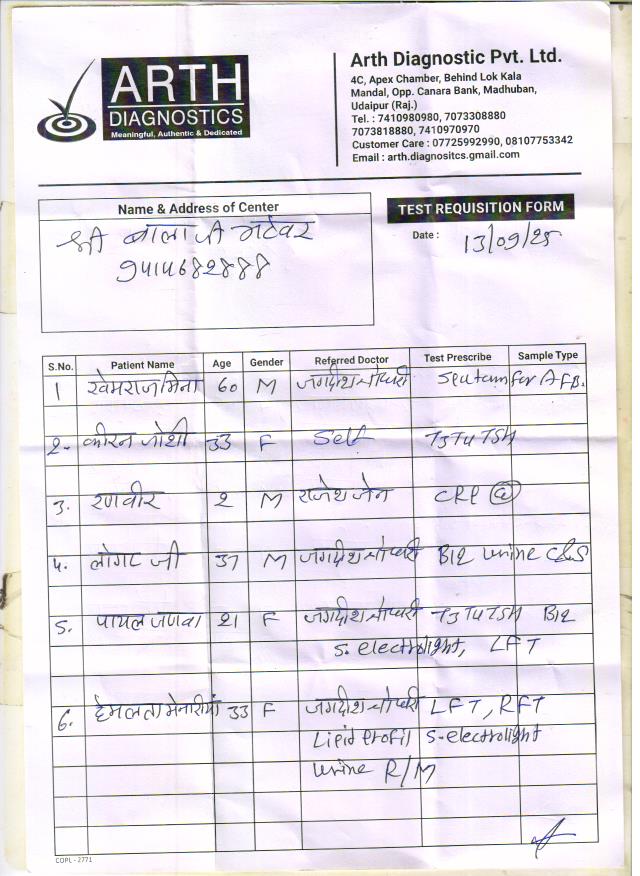 ARTH
DIAGNOSTICS
Meaningful, Authentic & Dedicated
Arth Diagnostic Pvt. Ltd.
4C, Apex Chamber, Behind Lok Kala
Mandal, Opp. Canara Bank, Madhuban,
Udaipur (Raj.)
Tel. : 7410980980, 7073308880
7073818880, 7410970970
Customer Care : 07725992990, 08107753342
Email : arth.diagnositcs.gmail.com
Name & Address of Center
श्री बाला जी मटेवर
9414682888
TEST REQUISITION FORM
Date : 13/09/25
S.No. Patient Name Age Gender Referred Doctor Test Prescribe Sample Type
1 खेमराज मिना 60 M जगदीश चौधरी Seutum for AFB.
2. कीरन जोशी 33 F Self T3 T4 TSH
3. रणवीर 2 M राजेश जेन CRP
4. लोगट जी 37 M जगदीश चौधरी B12 urine C&S
5. पायल जणवा 21 F जगदीश चौधरी T3 T4 TSH B12
S. electrolight, LFT
6. हेमलता मेनारीया 33 F जगदीश चौधरी LFT, RFT
Lipid Profil S-electrolight
urine R/M
COPL - 2771